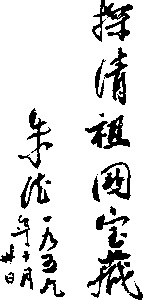 探清祖国宝藏
朱德 一九五九
年十二月
廿日